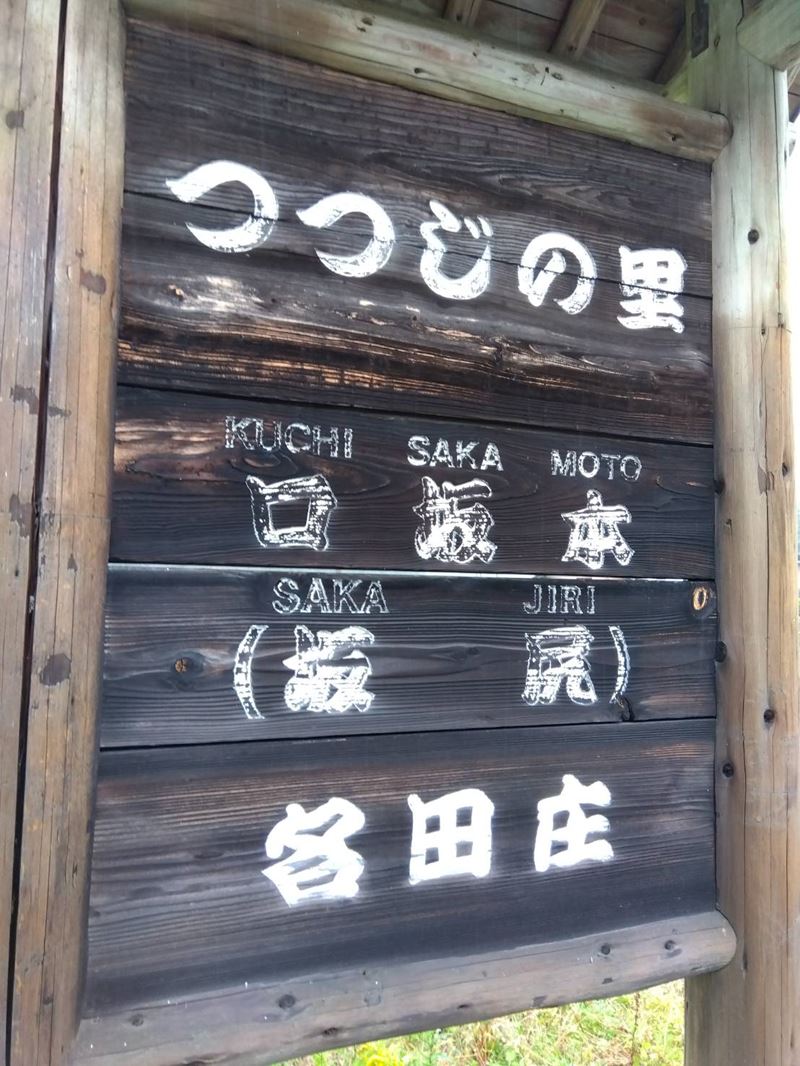 つつじの里
KUCHI SAKA MOTO
口坂本
SAKA JIRI
(坂尻)
名田庄